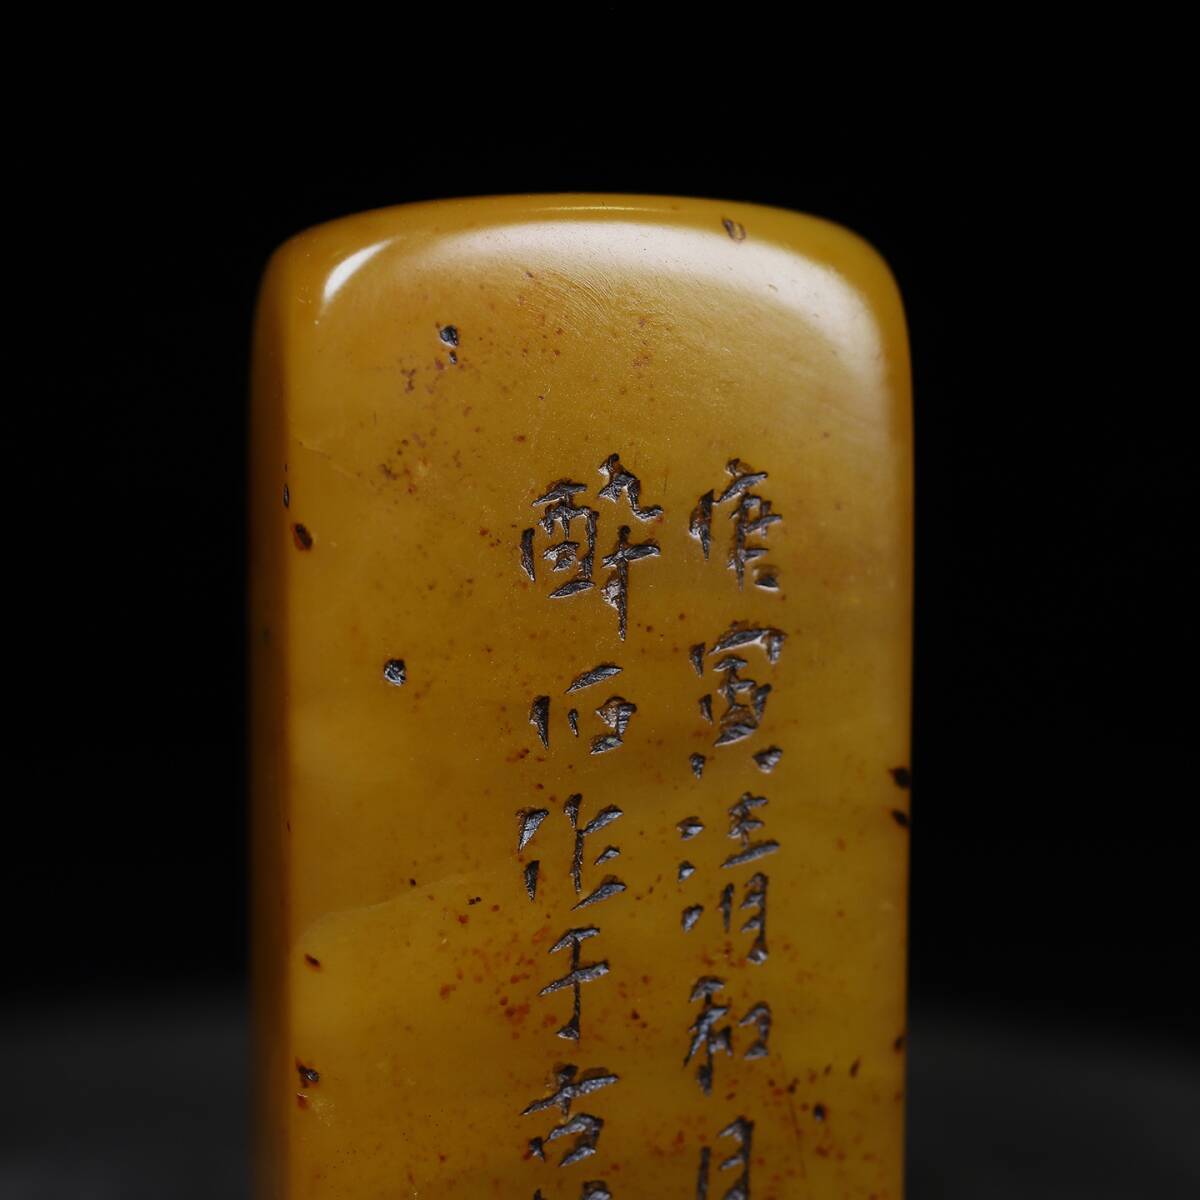 庚寅清和月
酔石作于古